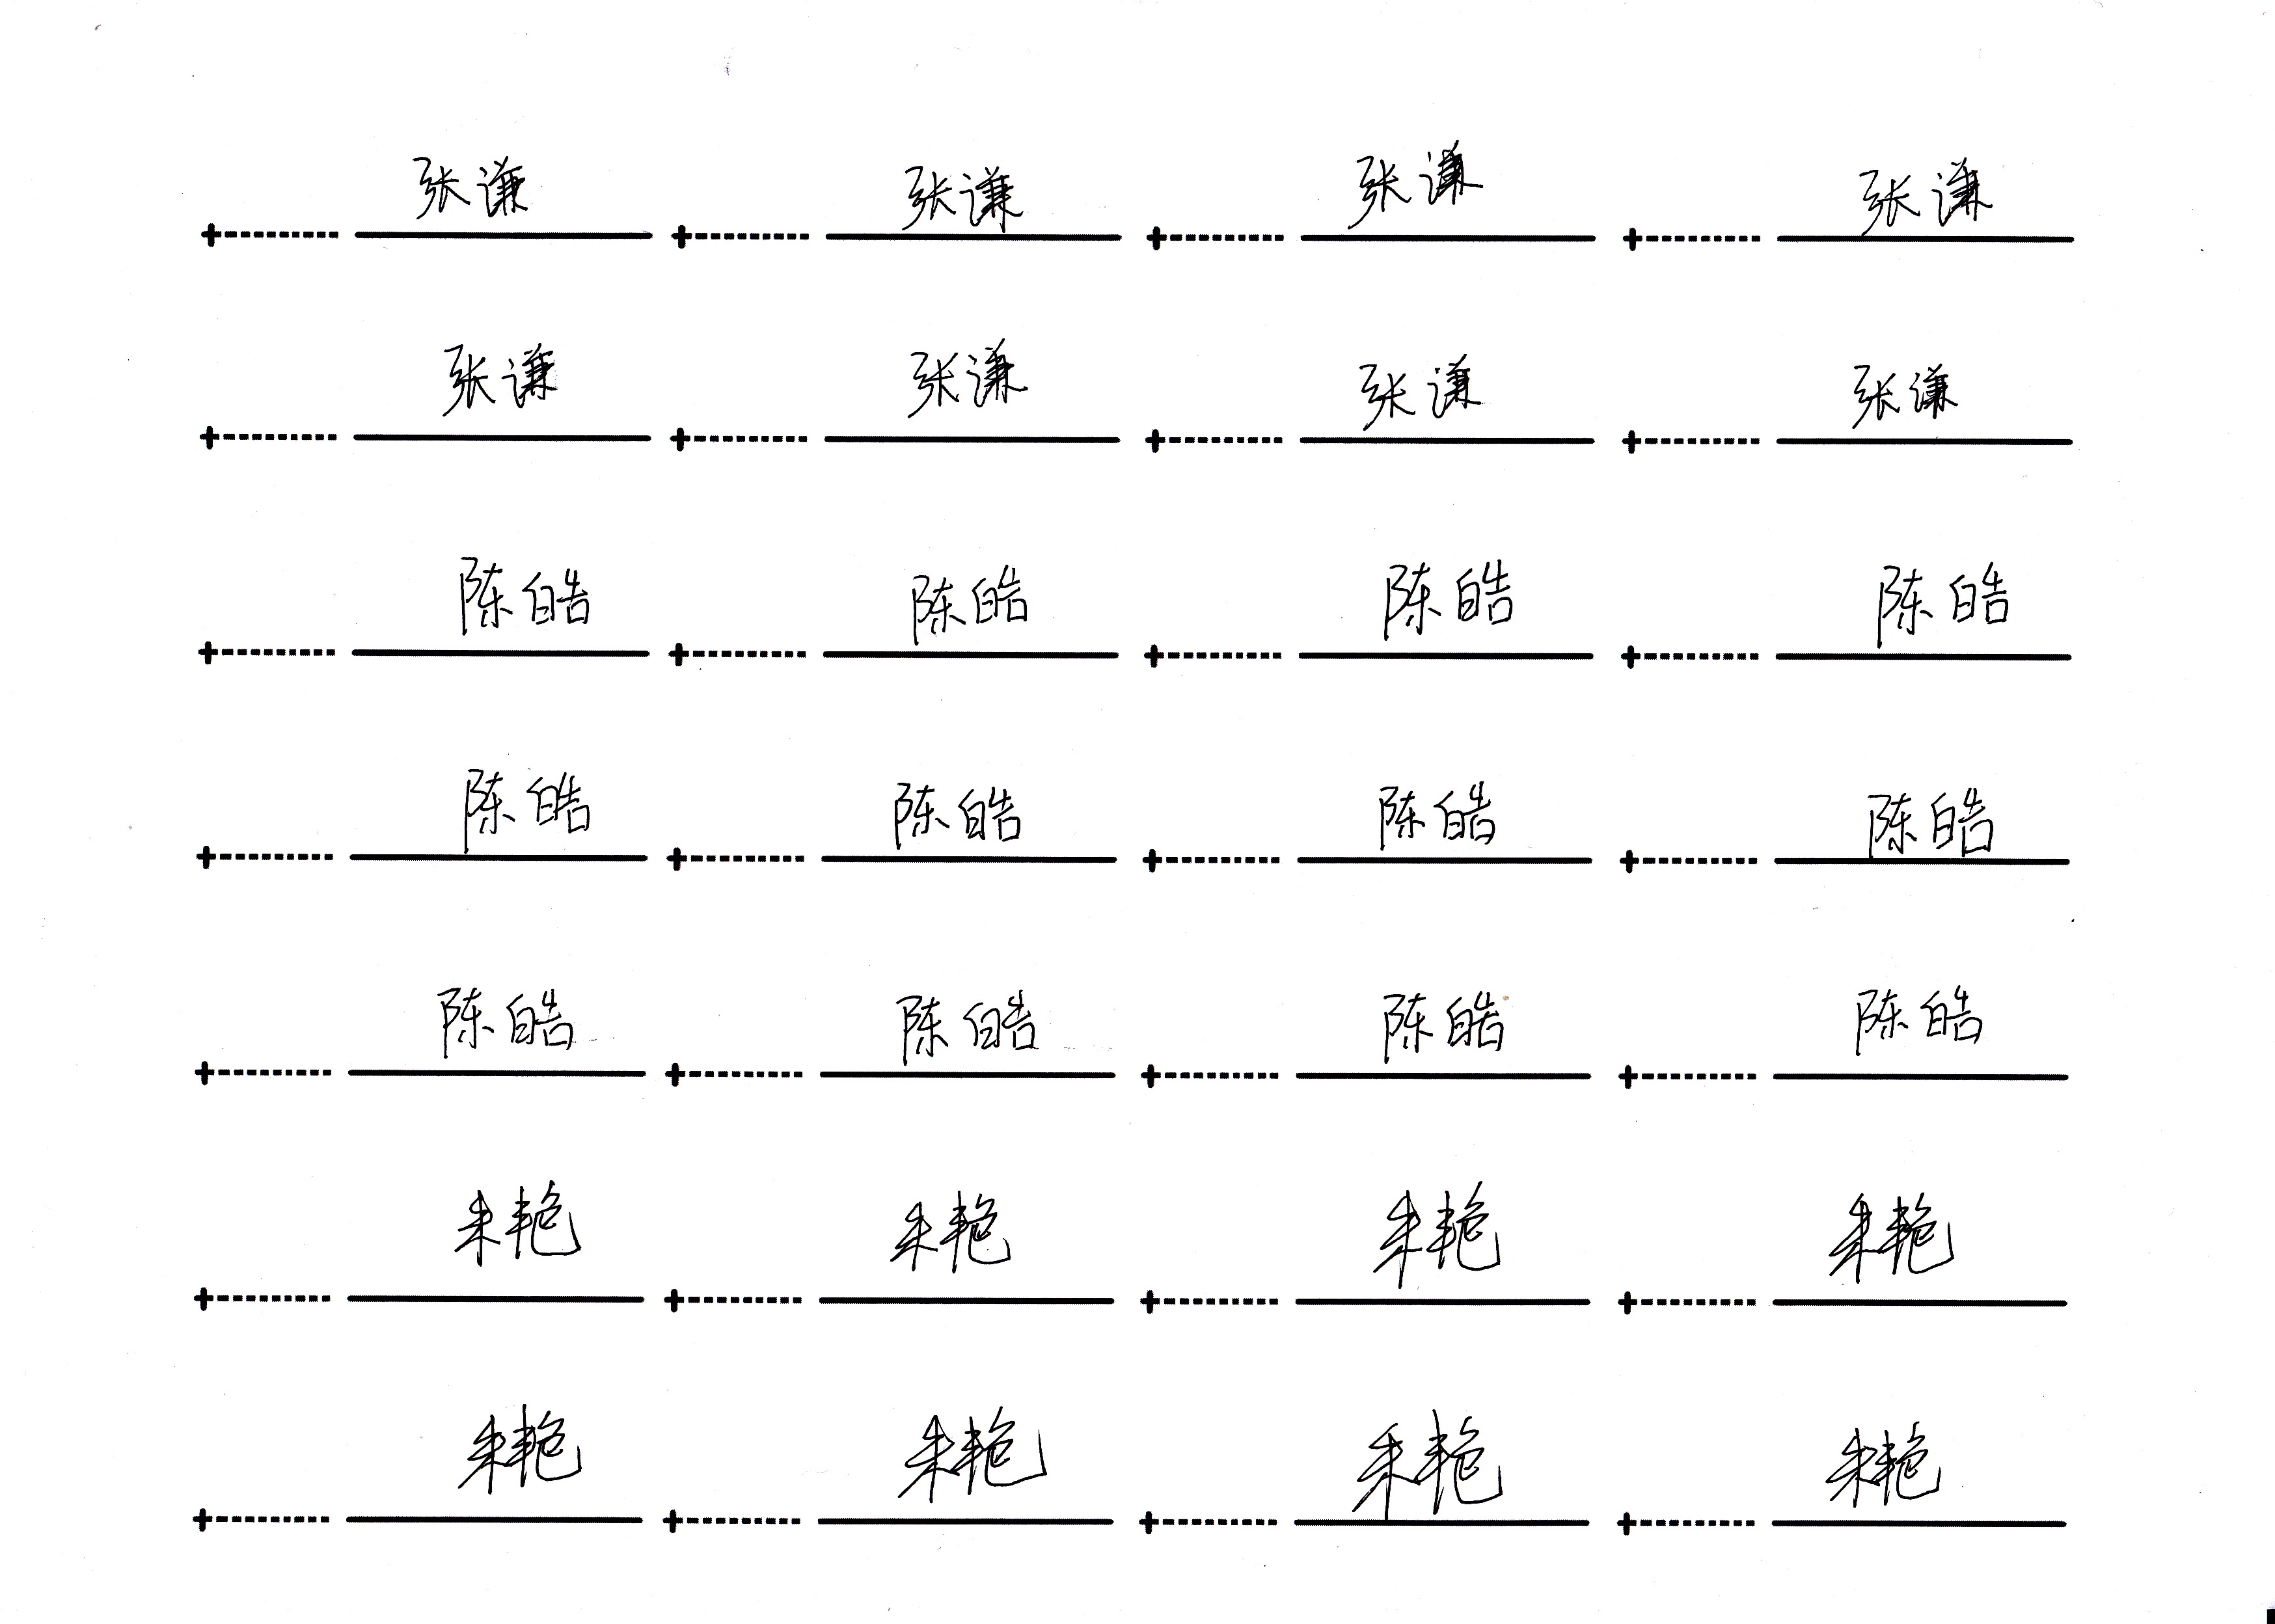 张谦 张谦 张谦 张谦
张谦 张谦 张谦 张谦
陈皓 陈皓 陈皓 陈皓
陈皓 陈皓 陈皓 陈皓
陈皓 陈皓 陈皓 陈皓
朱艳 朱艳 朱艳 朱艳
朱艳 朱艳 朱艳 朱艳